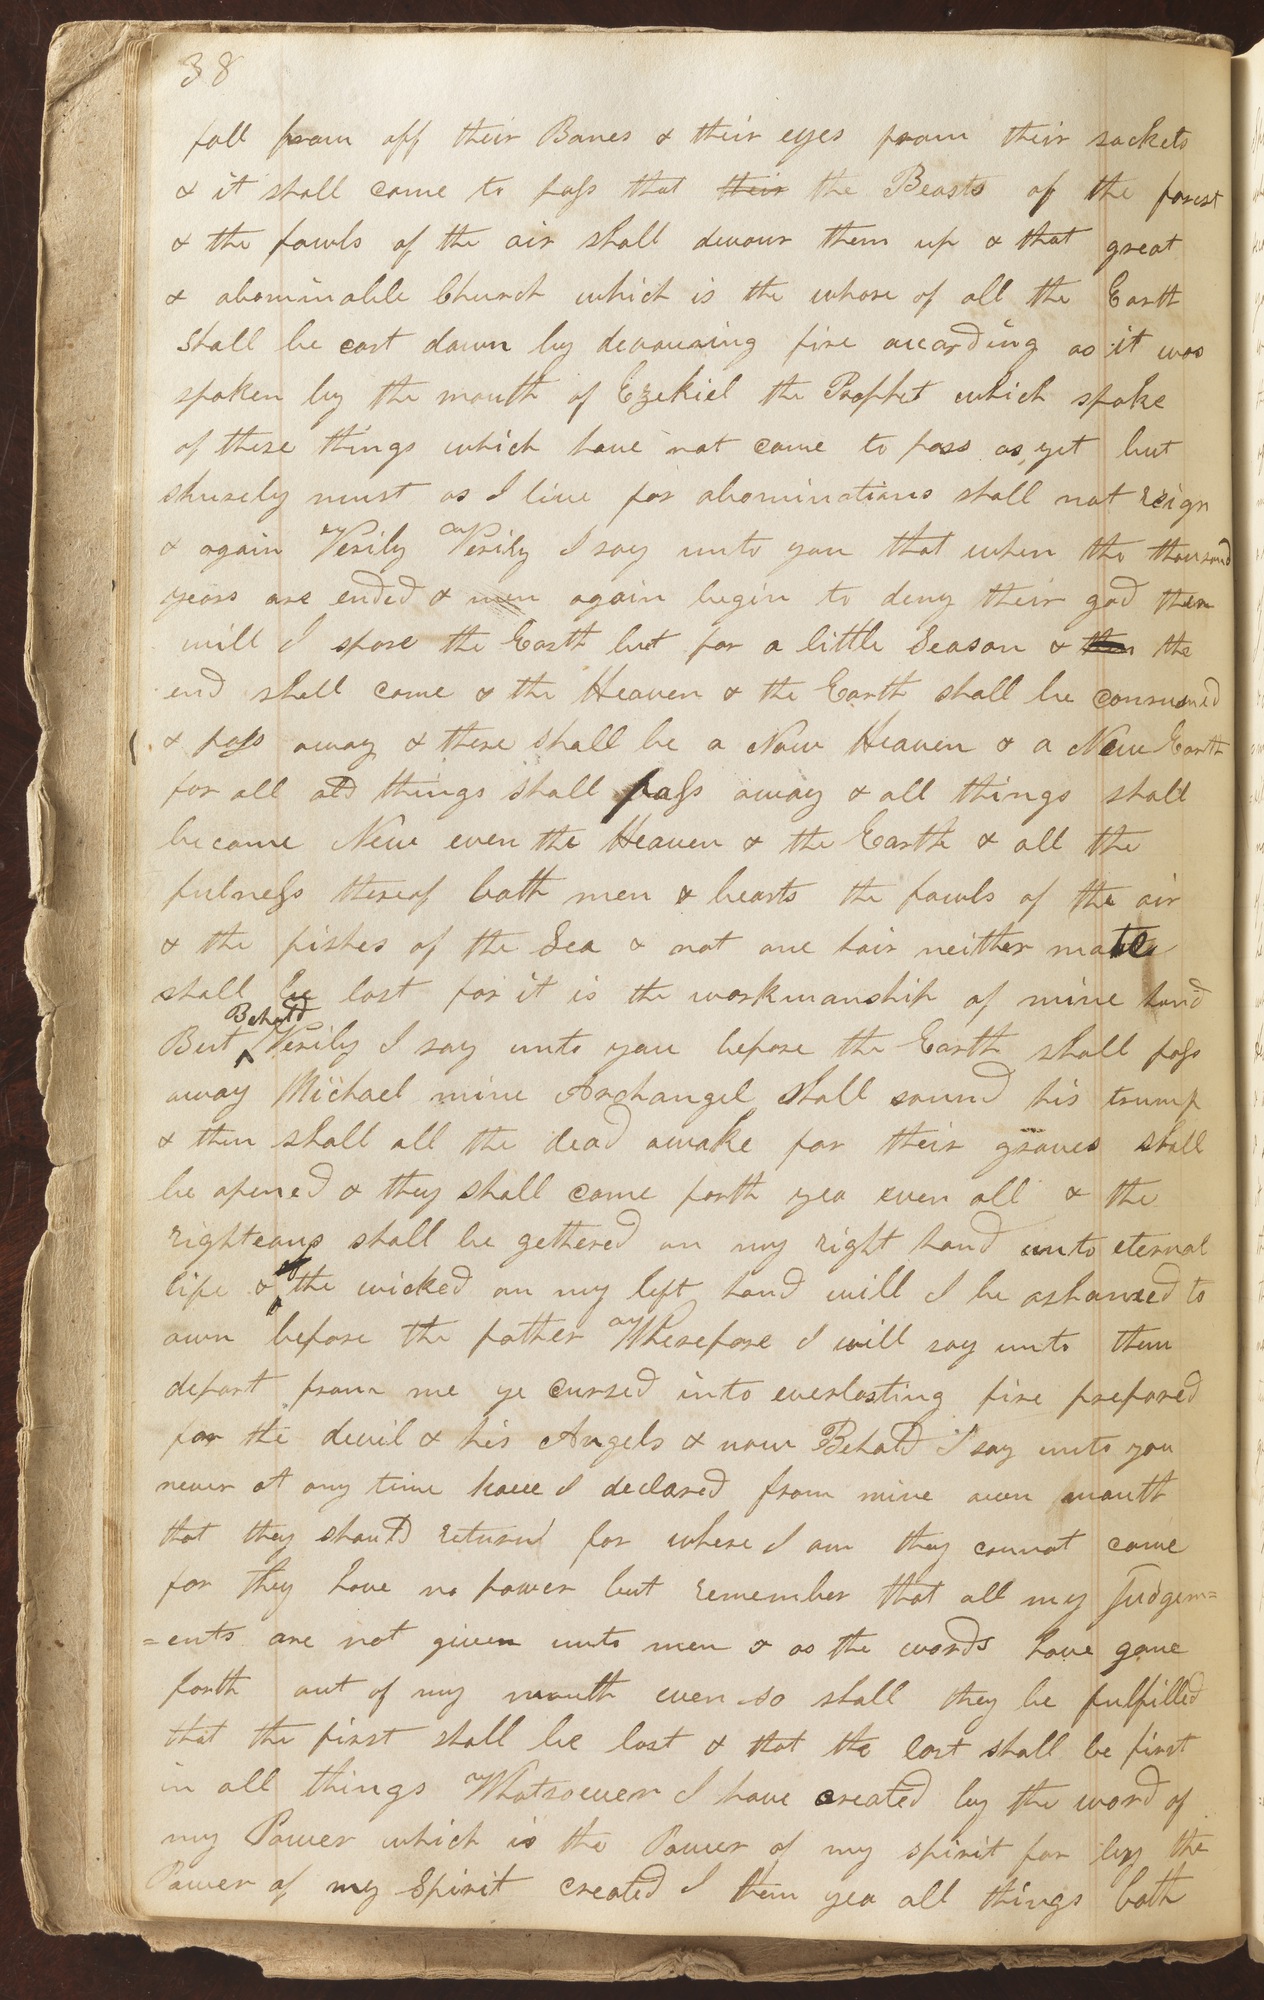 38
fall from off their Bones & their eyes from their sockets
& it shall come to pass that their the Beasts of the forest
& the fowls of the air shall devour them up & that great
& abominable Church which is the whore of all the Earth
shall be cast down by devouring fire according as it was
spoken by the mouth of Ezekiel the Prophet which spoke
of these things which have not come to pass as yet but
shurely must as I live for abominations shall not reign
& again Verily Verily I say unto you that when the thousand
years are ended & men again begin to deny their god then
will I spare the Earth but for a little Season & the
end shall come & the Heaven & the Earth shall be consumed
& pass away & there shall be a New Heaven & a New Earth
for all old things shall pass away & all things shall
become New even the Heaven & the Earth & all the
fulness thereof both men & beasts the fowls of the air
& the fishes of the Sea & not one hair neither mote
shall be lost for it is the workmanship of mine hand
But Behold Verily I say unto you before the Earth shall pass
away Michael mine Archangel shall sound his trump
& then shall all the dead awake for their graves shall
be opened & they shall come forth yea even all & the
righteous shall be gethered on my right hand unto eternal
life & the wicked on my left hand will I be ashamed to
own before the father Wherefore I will say unto them
depart from me ye cursed into everlasting fire prepared
for the devil & his Angels & now Behold I say unto you
never at any time have I declared from mine own mouth
that they should return for where I am they cannot come
for they have no power but remember that all my Judgem=
=ents are not given unto men & as the words have gone
forth out of my mouth even so shall they be fulfilled
that the first shall be last & that the last shall be first
in all things Whatsoever I have created by the word of
my Power which is the Power of my spirit for by the
Power of my Spirit created I them yea all things both